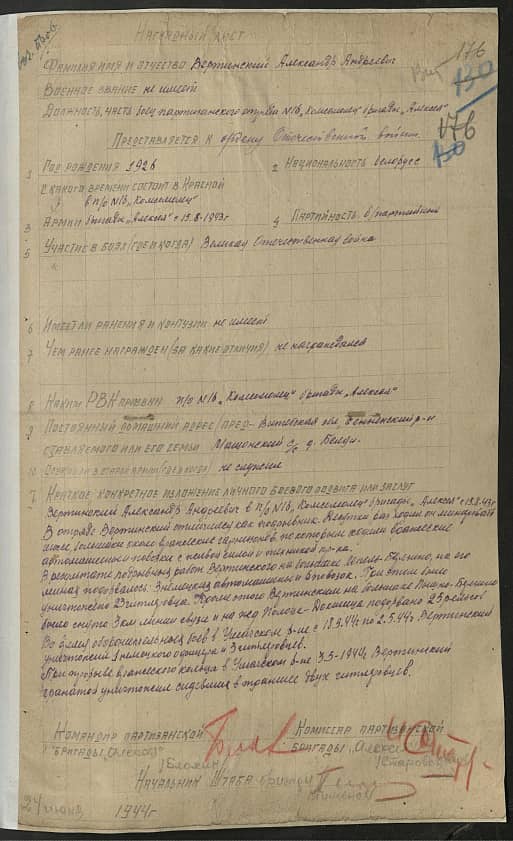 НАГРАДНЫЙ ЛИСТ
176
130
176
ФАМИЛИЯ ИМЯ И ОТЧЕСТВО Вертинский Александр Андреевич
ВОЕННОЕ ЗВАНИЕ не имеет
ДОЛЖНОСТЬ, ЧАСТЬ боец партизанского отряда №16 „Комсомолец" бригады „Алексея"
ПРЕДСТАВЛЯЕТСЯ К ордену Отечественной войны
1 ГОД РОЖДЕНИЯ 1926 2 НАЦИОНАЛЬНОСТЬ белорусс
С КАКОГО ВРЕМЕНИ СОСТОИТ В КРАСНОЙ
в п/о №16 „Комсомолец"
3 АРМИИ бригады „Алексея" с 15.8-1943г 4 ПАРТИЙНОСТЬ б/партийный
5 УЧАСТИЕ В БОЯХ (ГДЕ И КОГДА) Великая Отечественная война
6 ИМЕЕТ ЛИ РАНЕНИЯ И КОНТУЗИИ не имеет
7 ЧЕМ РАНЕЕ НАГРАЖДЕН (ЗА КАКИЕ ОТЛИЧИЯ) не награждался
8 КАКИМ РВК ПРИЗВАН п/о №16 „Комсомолец" бригады „Алексея"
9 ПОСТОЯННЫЙ ДОМАШНИЙ АДРЕС ПРЕД- Витебская обл. р-н
СТАВЛЯЕМОГО ИЛИ ЕГО СЕМЬИ с/с д.
10 СЛУЖИЛ ЛИ В СТАРОЙ АРМИИ (ГДЕ И КОГДА) не служил
КРАТКОЕ КОНКРЕТНОЕ ИЗЛОЖЕНИЕ ЛИЧНОГО БОЕВОГО ПОДВИГА ИЛИ ЗАСЛУГ
Вертинский Александр Андреевич в п/о №16 „Комсомолец" бригады „Алексея" с
В отряде Вертинский отличился как подрывник. Несколько раз ходил он минировать
шоссе, большаки около вражеских гарнизонов, по которым ходили вражеские
автомашины и повозки с живой силой и техникой пр-ка.
В результате подрывных работ Вертинского на большаке на его
минах подорвалось: 3 немецких автомашины и повозок. При этом было
уничтожено 23 гитлеровца. Кроме этого Вертинским на большаке
было снято 3км линии связи и на жд Полоцк-Докшица подорвано 25 рельсов
Во время оборонительных боев в Ушачском р-не с по 2.5.44г. Вертинский
уничтожил 1 немецкого офицера и 3 гитлеровцев.
При прорыве вражеского кольца в Ушачском р-не 3.5-1944г. Вертинский
гранатой уничтожил сидевших в траншее двух гитлеровцев.
КОМАНДИР ПАРТИЗАНСКОЙ КОМИССАР ПАРТИЗАНСКОЙ
БРИГАДЫ „Алексея" БРИГАДЫ „Алексея"
/Блохин/
НАЧАЛЬНИК ШТАБА бригады
24 июня
1944г